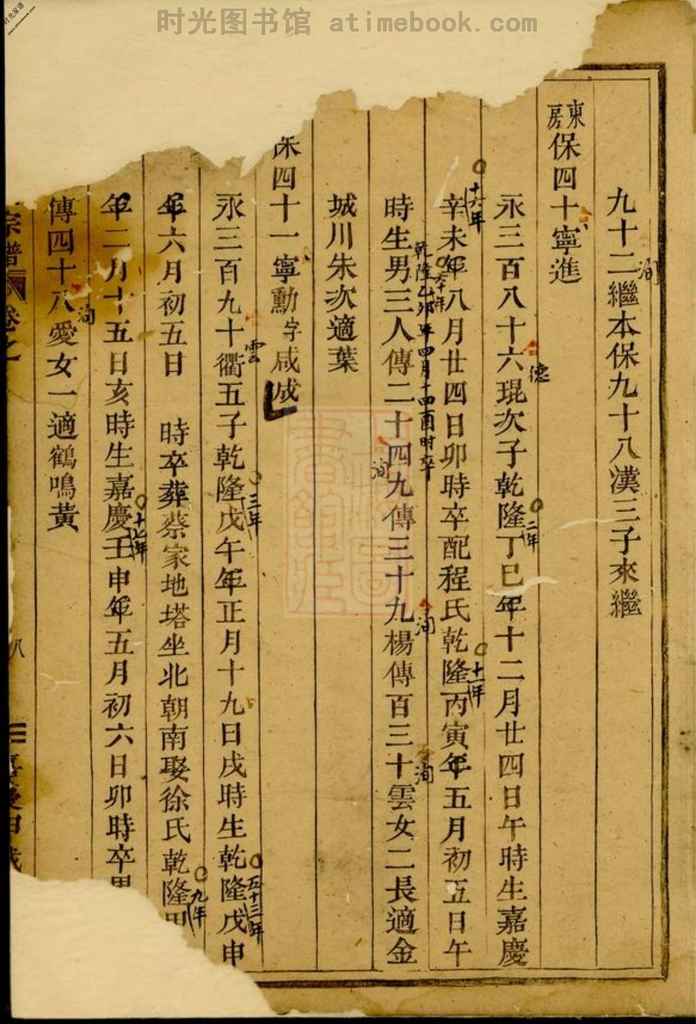 时光图书馆 atimebook.com
九十二繼本保九十八漢三子來繼
洵
東房保四十寧進
永三百八十六琨次子乾隆丁巳年十二月廿四日午時生嘉慶
德
二年
辛未年八月廿四日卯時卒配程氏乾隆丙寅年五月初五日午
十六年
十一年
乾隆乙卯年四月十四酉時卒
六十年
時生男三人傳二十四九傳三十九楊傳百三十雲女二長適金
洵
洵
洵
城川朱次適葉
保四十一寧勳字咸成
永三百九十衢五子乾隆戊午年正月十九日戌時生乾隆戊申
雲
三年
五十三年
年六月初五日 時卒葬蔡家地塔坐北朝南娶徐氏乾隆甲
九年
年二月十五日亥時生嘉慶壬申年五月初六日卯時卒男
洵
十七年
傳四十八愛女一適鶴鳴黃
宗譜 卷之
八